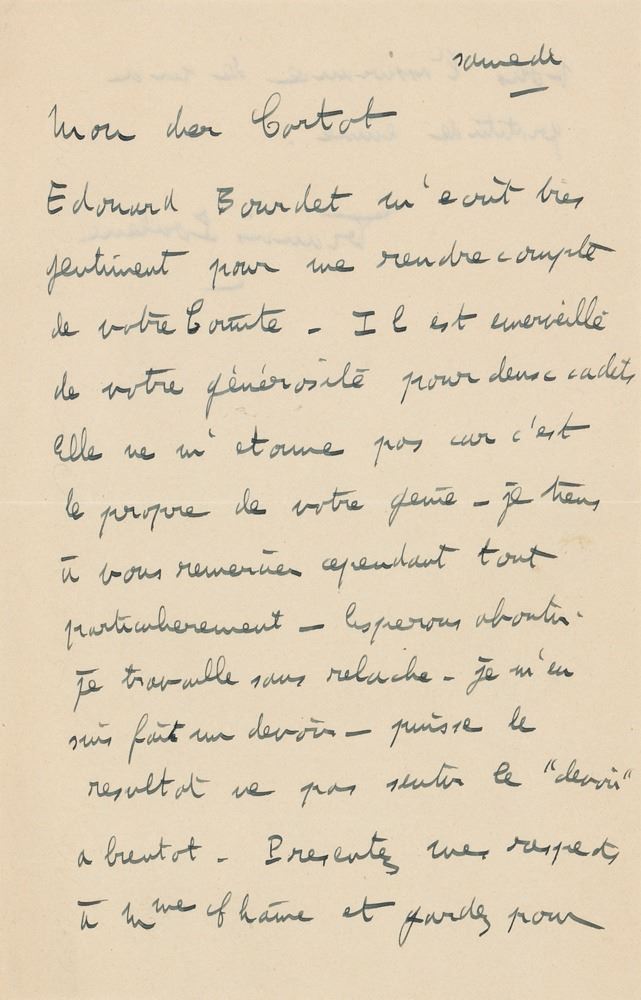 samedi
Mon cher Cortot
Edouard Bourdet m'ecrit tres
gentiment pour me rendre compte
de votre Comite - Il est emerveillé
de votre générosité pour deux cadets
Elle ne m'etonne pas car c'est
le propre de votre genie - je tiens
à vous remercier cependant tout
particulierement - Esperons aboutir.
je travaille sans relache - je m'en
suis fait un devoir - puisse le
resultat ne pas sentir le "devoir"
a bientot - Presentez mes respects
à Mme et gardez pour